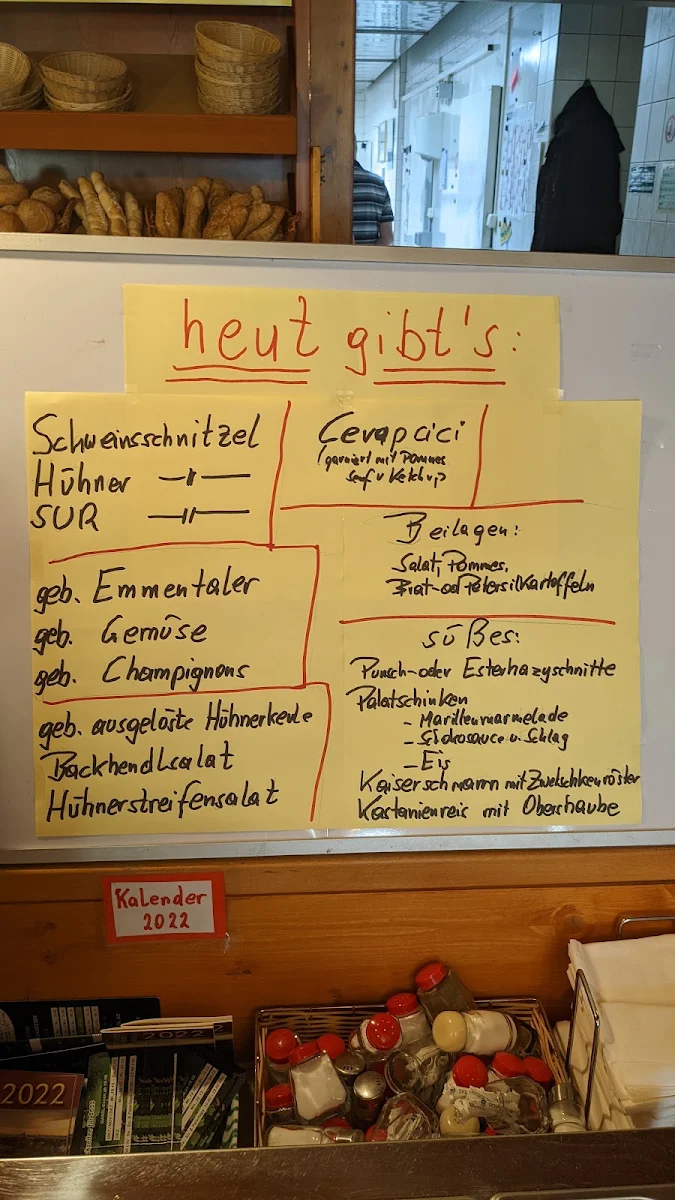 heut gibt's:
Schweinsschnitzel
Hühner —"—
SUR —"—
Cevapcici
(garniert mit Pommes
Senf u Ketchup
geb. Emmentaler
geb. Gemüse
geb. Champignons
geb. ausgelöste Hühnerkeule
Backhendlsalat
Hühnerstreifensalat
Beilagen:
Salat, Pommes,
Brat-od Petersilkartoffeln
süßes:
Punsch-oder Esterhazyschnitte
Palatschinken
- Marillenmarmelade
- Schokosauce u. Schlag
- Eis
Kaiserschmarrn mit Zwetschkenröster
Kastanienreis mit Obershaube
Kalender
2022
2022
2022